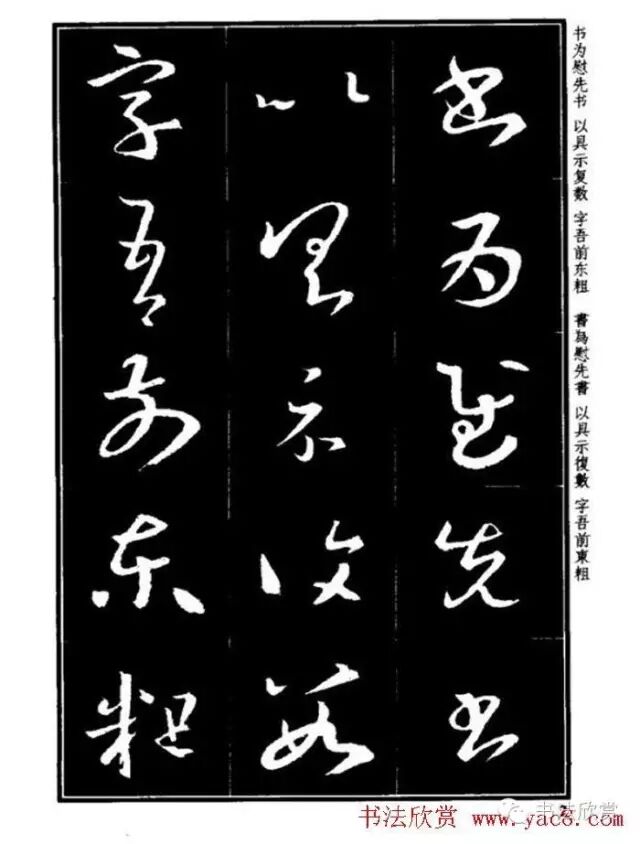 書為慰先書
以具示復數
字吾前東粗
书为慰先书 以具示复数 字吾前东粗 書為慰先書 以具示復數 字吾前東粗
书法欣赏 www.yac8.com
书法欣赏
2